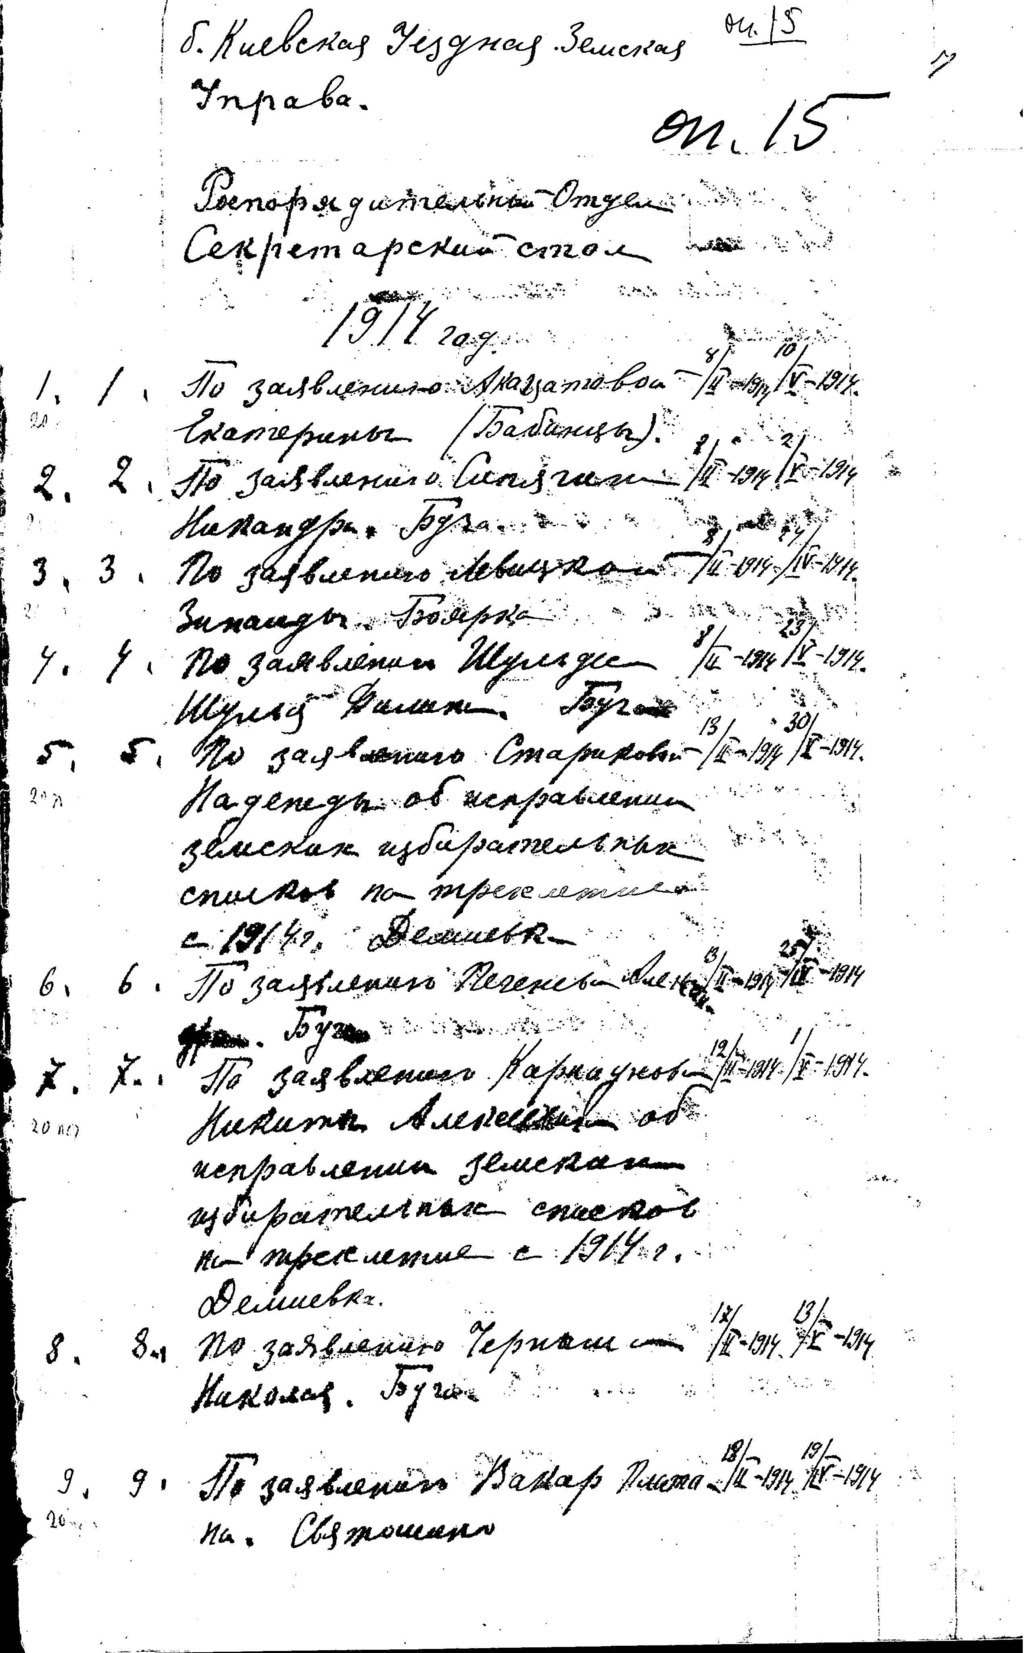 б. Киевская Уездная Земская оп. 15
Управа.
оп. 15
Распорядительный Отдел
Секретарский стол
1914 год.
1. 1. По заявлению 8/II-1914 10/V-1914.
Екатерины (Бабинцы).
2. 2. По заявлению Сипягина /II-1914 2/V-1914
Никандра. Буча.
3. 3. По заявлению Левицкой 8/II-1914 24/IV-1914.
Зинаиды. Боярка
4. 4. По заявлению 8/II-1914 23/V-1914.
Буча
5. 5. По заявлению Стариковой 13/II-1914 30/V-1914.
Надежды об исправлении
земских избирательных
списков на трехлетие
с 1914 г. Демиевка
6. 6. По заявлению 13/II-1914 25/IV-1914
Буча
7. 7. По заявлению 12/II-1914 1/V-1914.
Никиты об
исправлении земских
избирательных списков
на трехлетие с 1914 г.
Демиевка.
8. 8. По заявлению Черныш 17/II-1914. 13/V-1914
Николая. Буча
9. 9. По заявлению Вакар Плато- 18/II-1914 19/IV-1914
на. Святошино